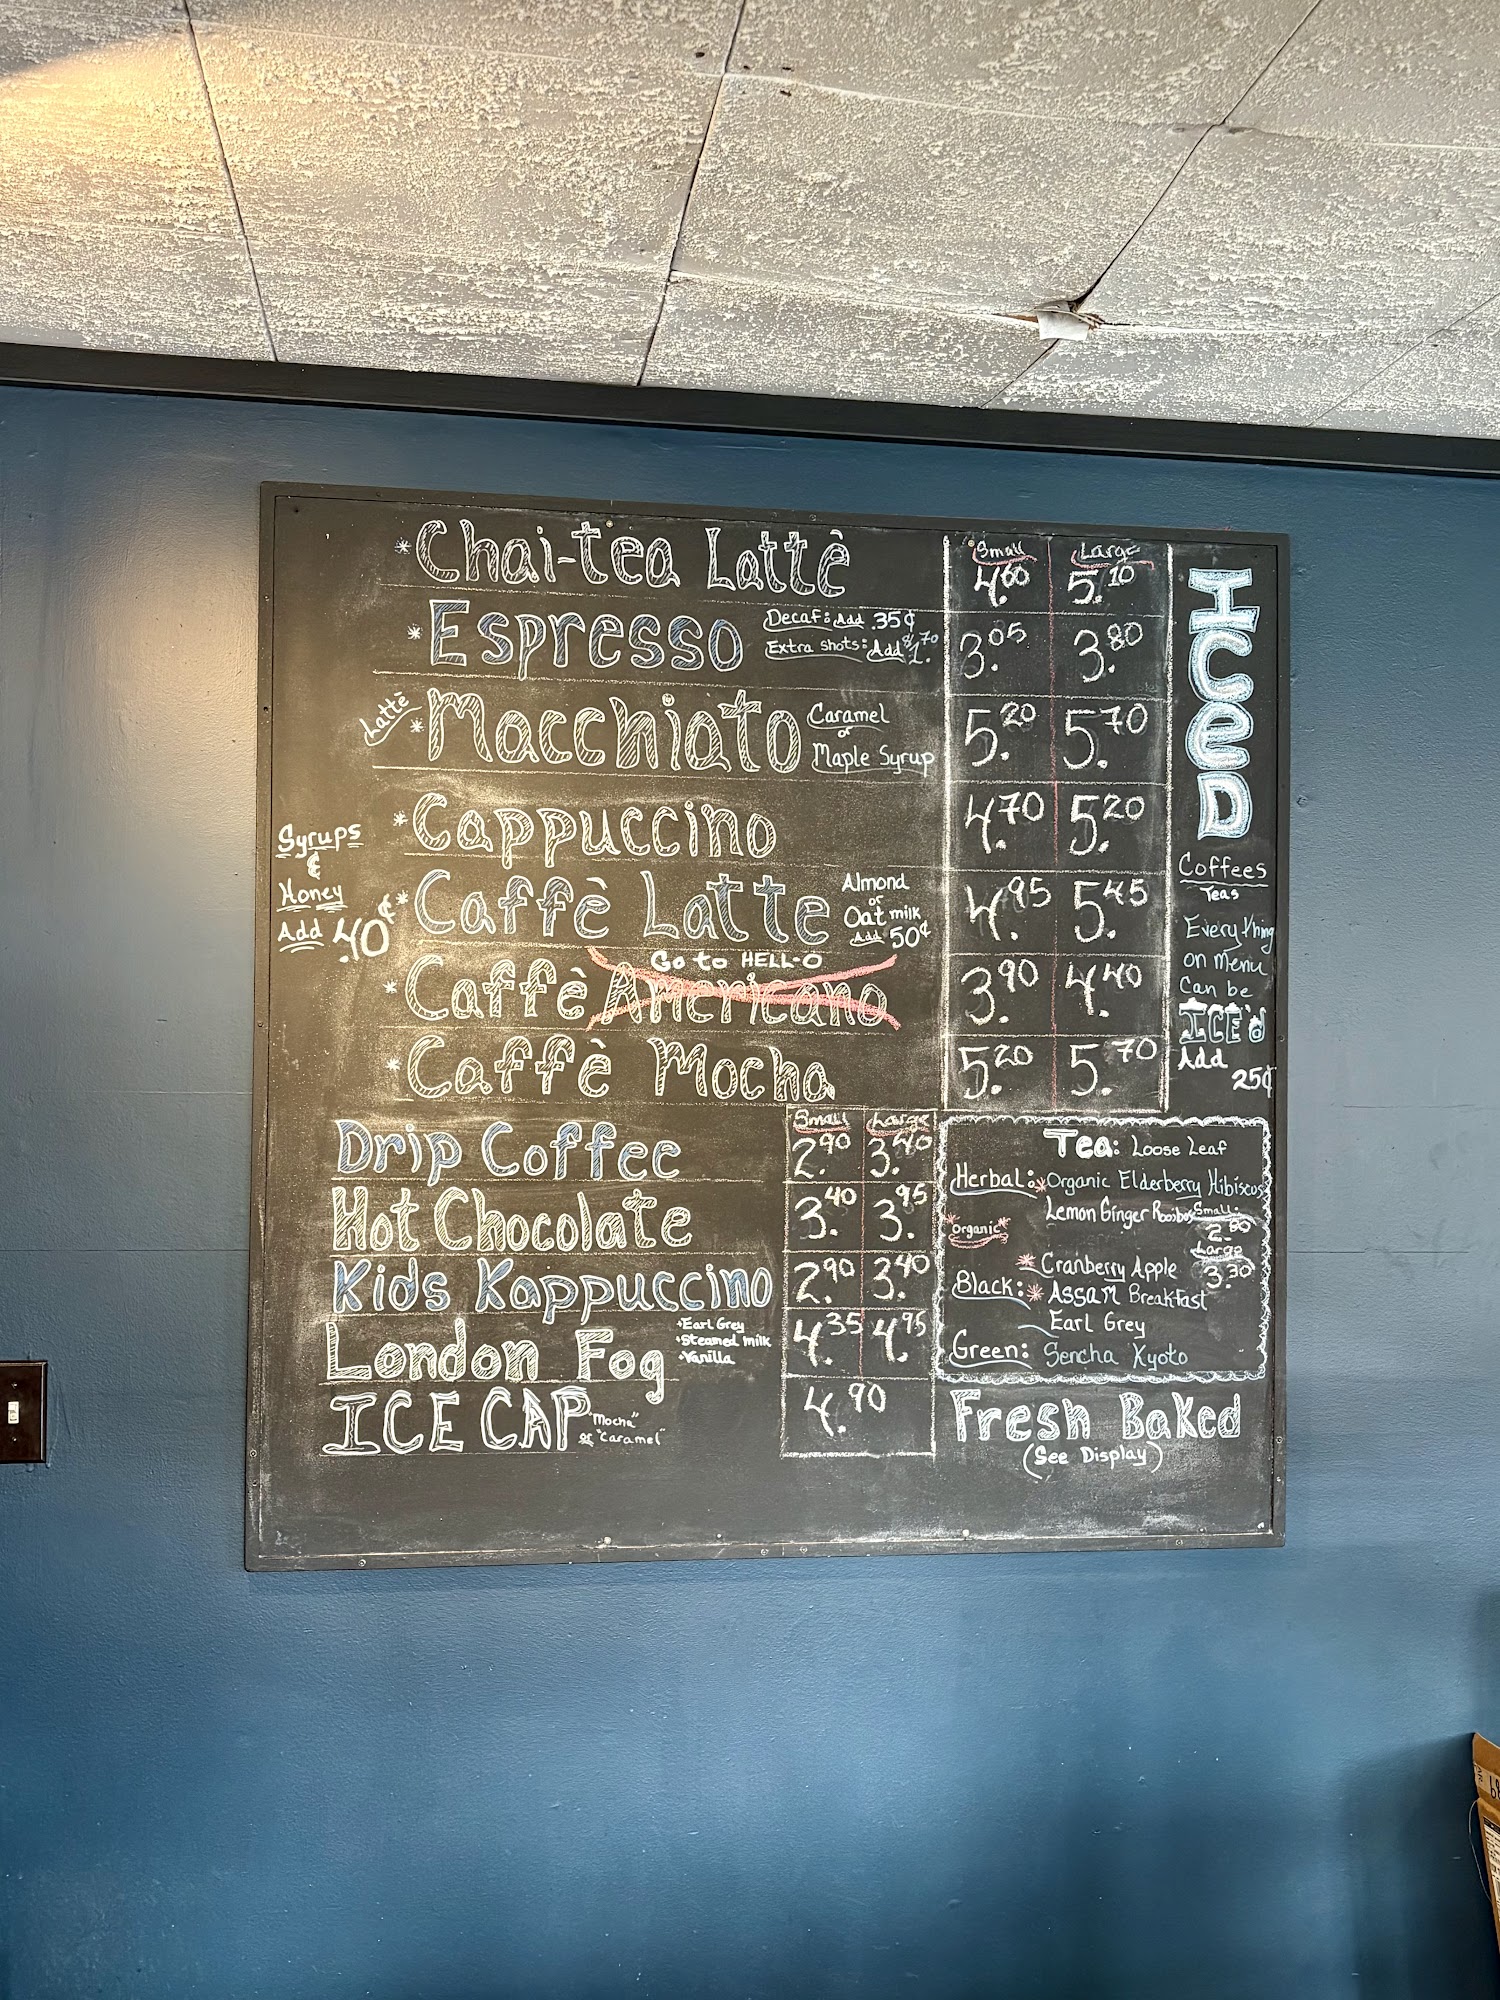 Small Large
* Chai-tea Lattè 4.60 5.10
* Espresso Decaf: Add .35¢ 3.05 3.80
Extra shots: Add $1.70
Lattè * Macchiato Caramel 5.20 5.70
or
Maple Syrup
* Cappuccino 4.70 5.20
Syrups
&
Honey
Add .40¢
* Caffè Latte Almond 4.95 5.45
or
Oat milk
Add 50¢
Go to HELL-O
* Caffè Americano 3.90 4.40
* Caffè Mocha 5.20 5.70
ICeD
Coffees
Teas
Everything
on menu
Can be
ICE'd
Add
25¢
Small Large
Drip Coffee 2.90 3.40
Hot Chocolate 3.40 3.95
Kids Kappuccino 2.90 3.40
London Fog 4.35 4.95
• Earl Grey
• Steamed milk
• Vanilla
ICE CAP "Mocha" 4.90
or "Caramel"
Tea: Loose Leaf
Herbal: * Organic Elderberry Hibiscus
Lemon Ginger Rooibos
Small: 2.80
*organic*
Large 3.30
* Cranberry Apple
Black: * Assam Breakfast
Earl Grey
Green: Sencha Kyoto
Fresh Baked
(See Display)